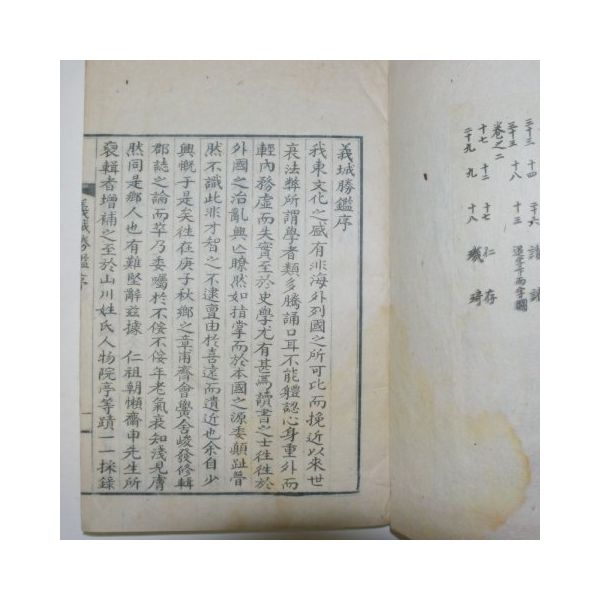 義城勝鑑序
我東文化之盛有非海外列國之所可比而挽近以來世
衰法弊所謂學者類多騰誦口耳不能軆認心身重外而
輕內務虛而失實至於史學尤有甚焉讀書之士往往於
外國之治亂興亡瞭然如指掌而於本國之源委顚趾瞢
然不識此非才智之不逮亶由於喜遠而遺近也余自少
興慨于是矣徃在庚子秋鄉之章甫齊會黌舍峻發修輯
郡誌之論而萃乃委囑於不侫不侫年老氣衰知淺見膚
然同是鄉人也有難堅辭玆據 仁祖朝懶齋申先生所
裒輯者增補之至於山川姓氏人物院亭等蹟一一採錄
義城勝鑑序 一
三十三 十四 十六
三十五 十八 十三
卷之二
十七 十二 十七 仁 存
二十九 九 十八